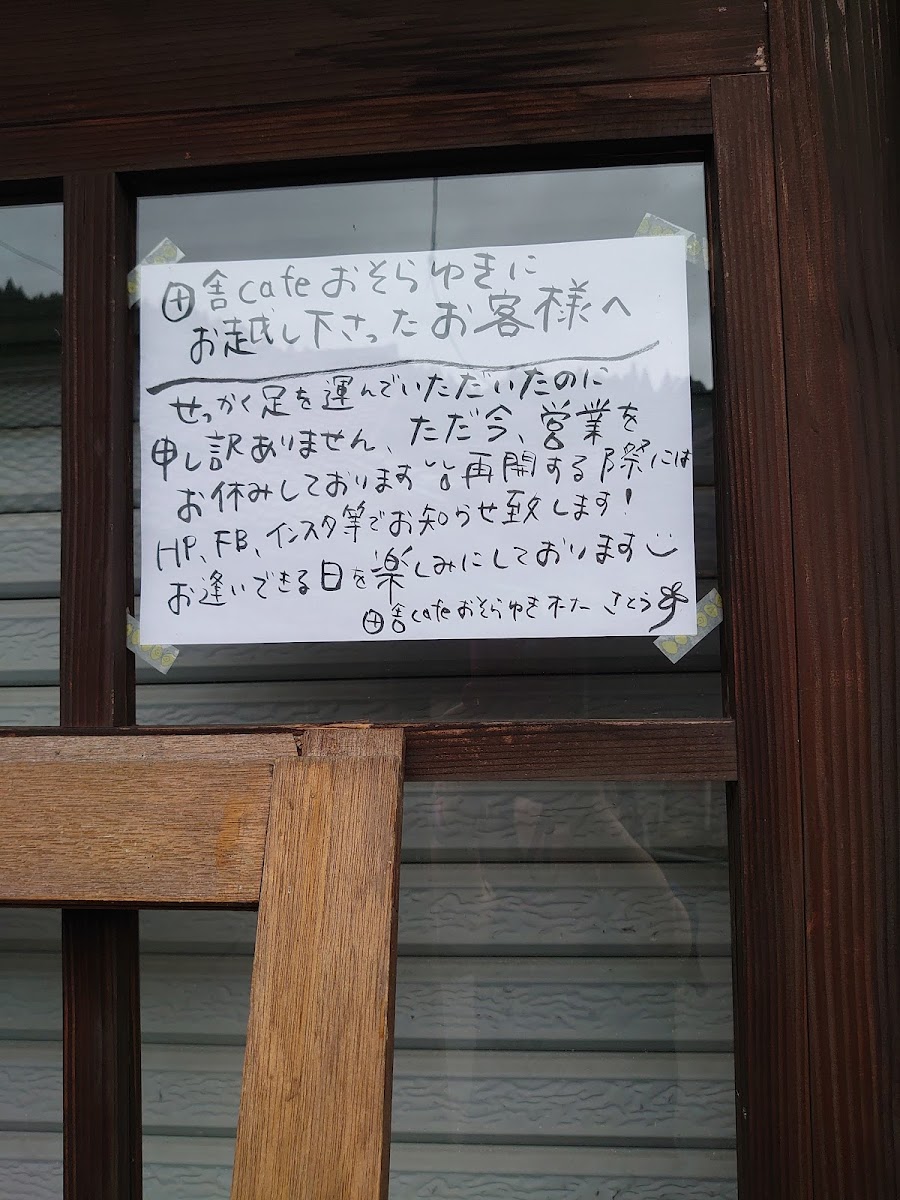 田舎cafeおそらゆきに
お越し下さったお客様へ
せっかく足を運んでいただいたのに
申し訳ありません、ただ今、営業を
お休みしております 再開する際には
HP、FB、インスタ等でお知らせ致します!
お逢いできる日を楽しみにしております
田舎cafeおそらゆき さとう